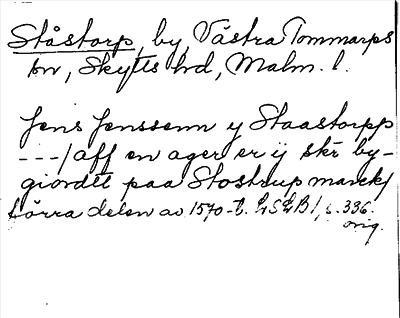 Ståstorp, by, Västra Tommarps
sn, Skytts hd, Malm. l.
Jens Jenssenn y Staastorpp
---/ aff en ager er ij skr by-
giordtt paa Stostrup marck/
Förra delen av 1570-t. LSLB 1, s. 336.
orig.